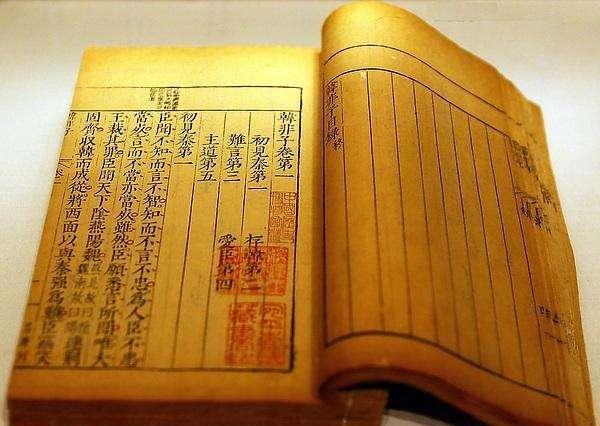 韓非子目錄終
韓非子卷第一
初見秦第一 存韓第二
難言第三 愛臣第四
主道第五
初見秦第一
臣聞不知而言不智知而不言不忠為人臣不忠
當死言而不當亦當死雖然臣願悉言所聞唯大
王裁其罪臣聞天下陰燕陽魏連荊
固齊收韓而成從將西面以與秦强為難臣竊笑